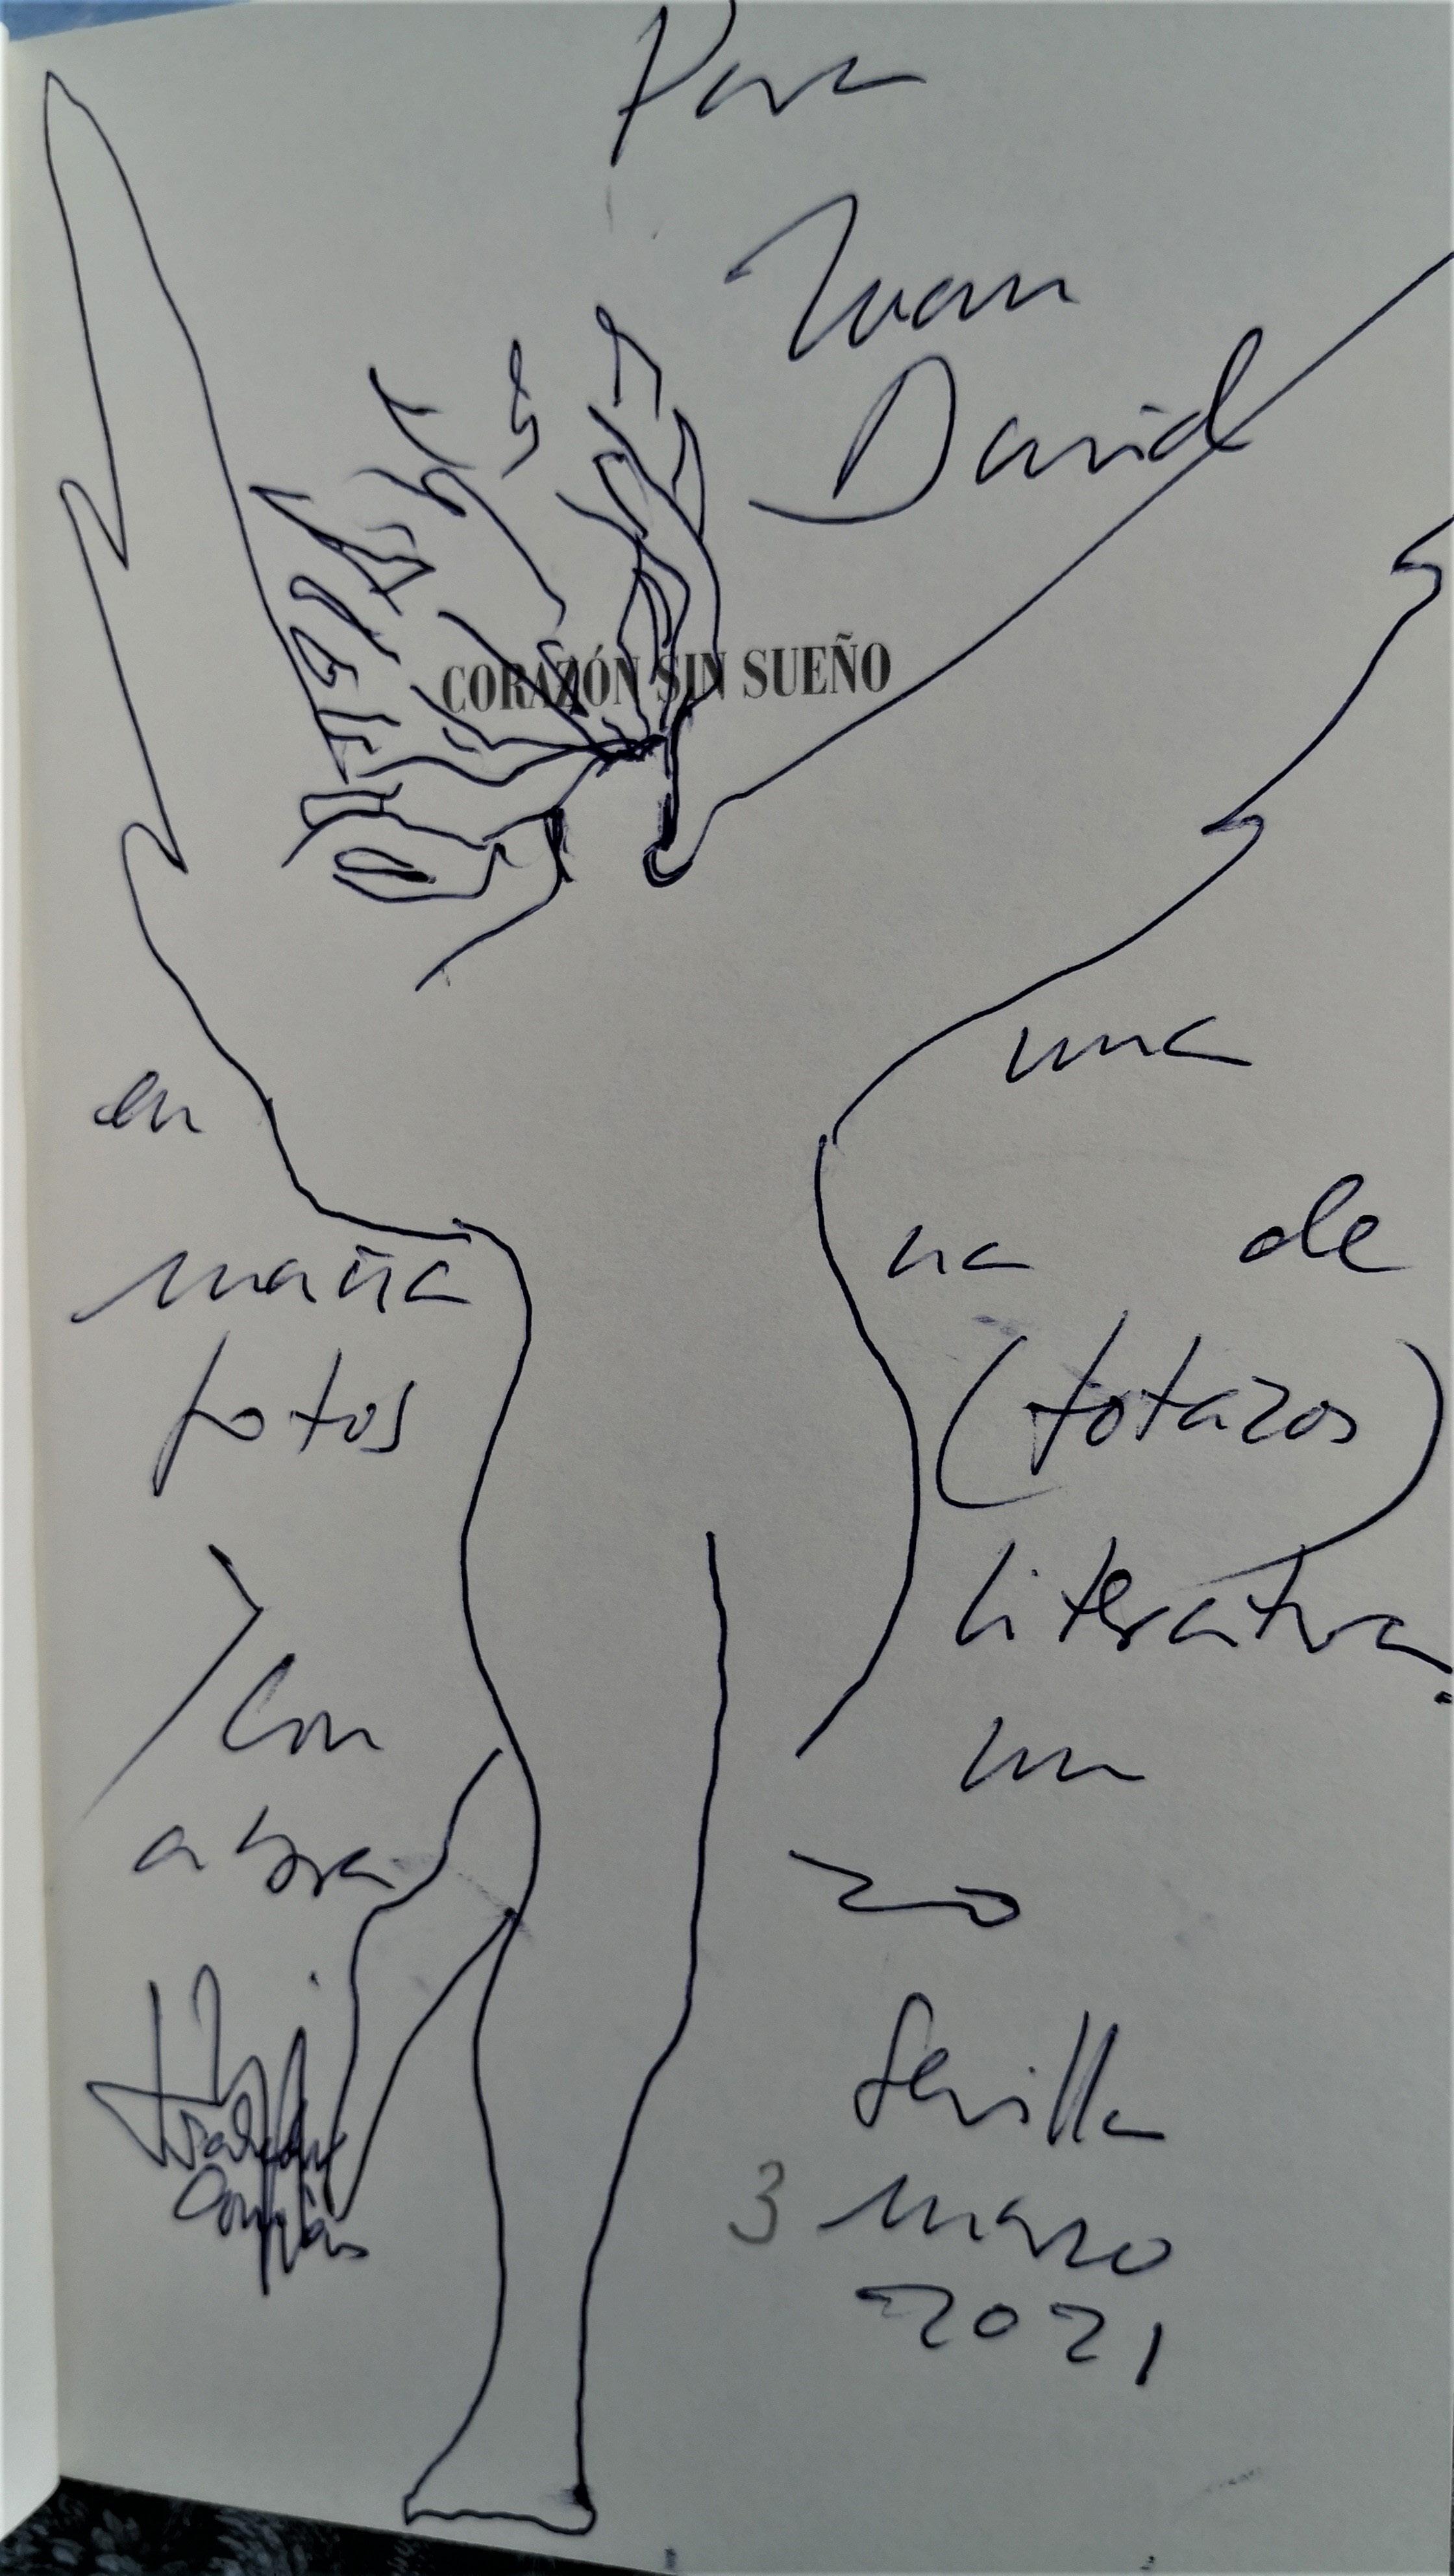 Para
Juan
David
CORAZÓN SIN SUEÑO
en una
maña na de
fotos (fotazos)
y literatura.
Con un
abra zo
Sevilla
3 marzo
2021